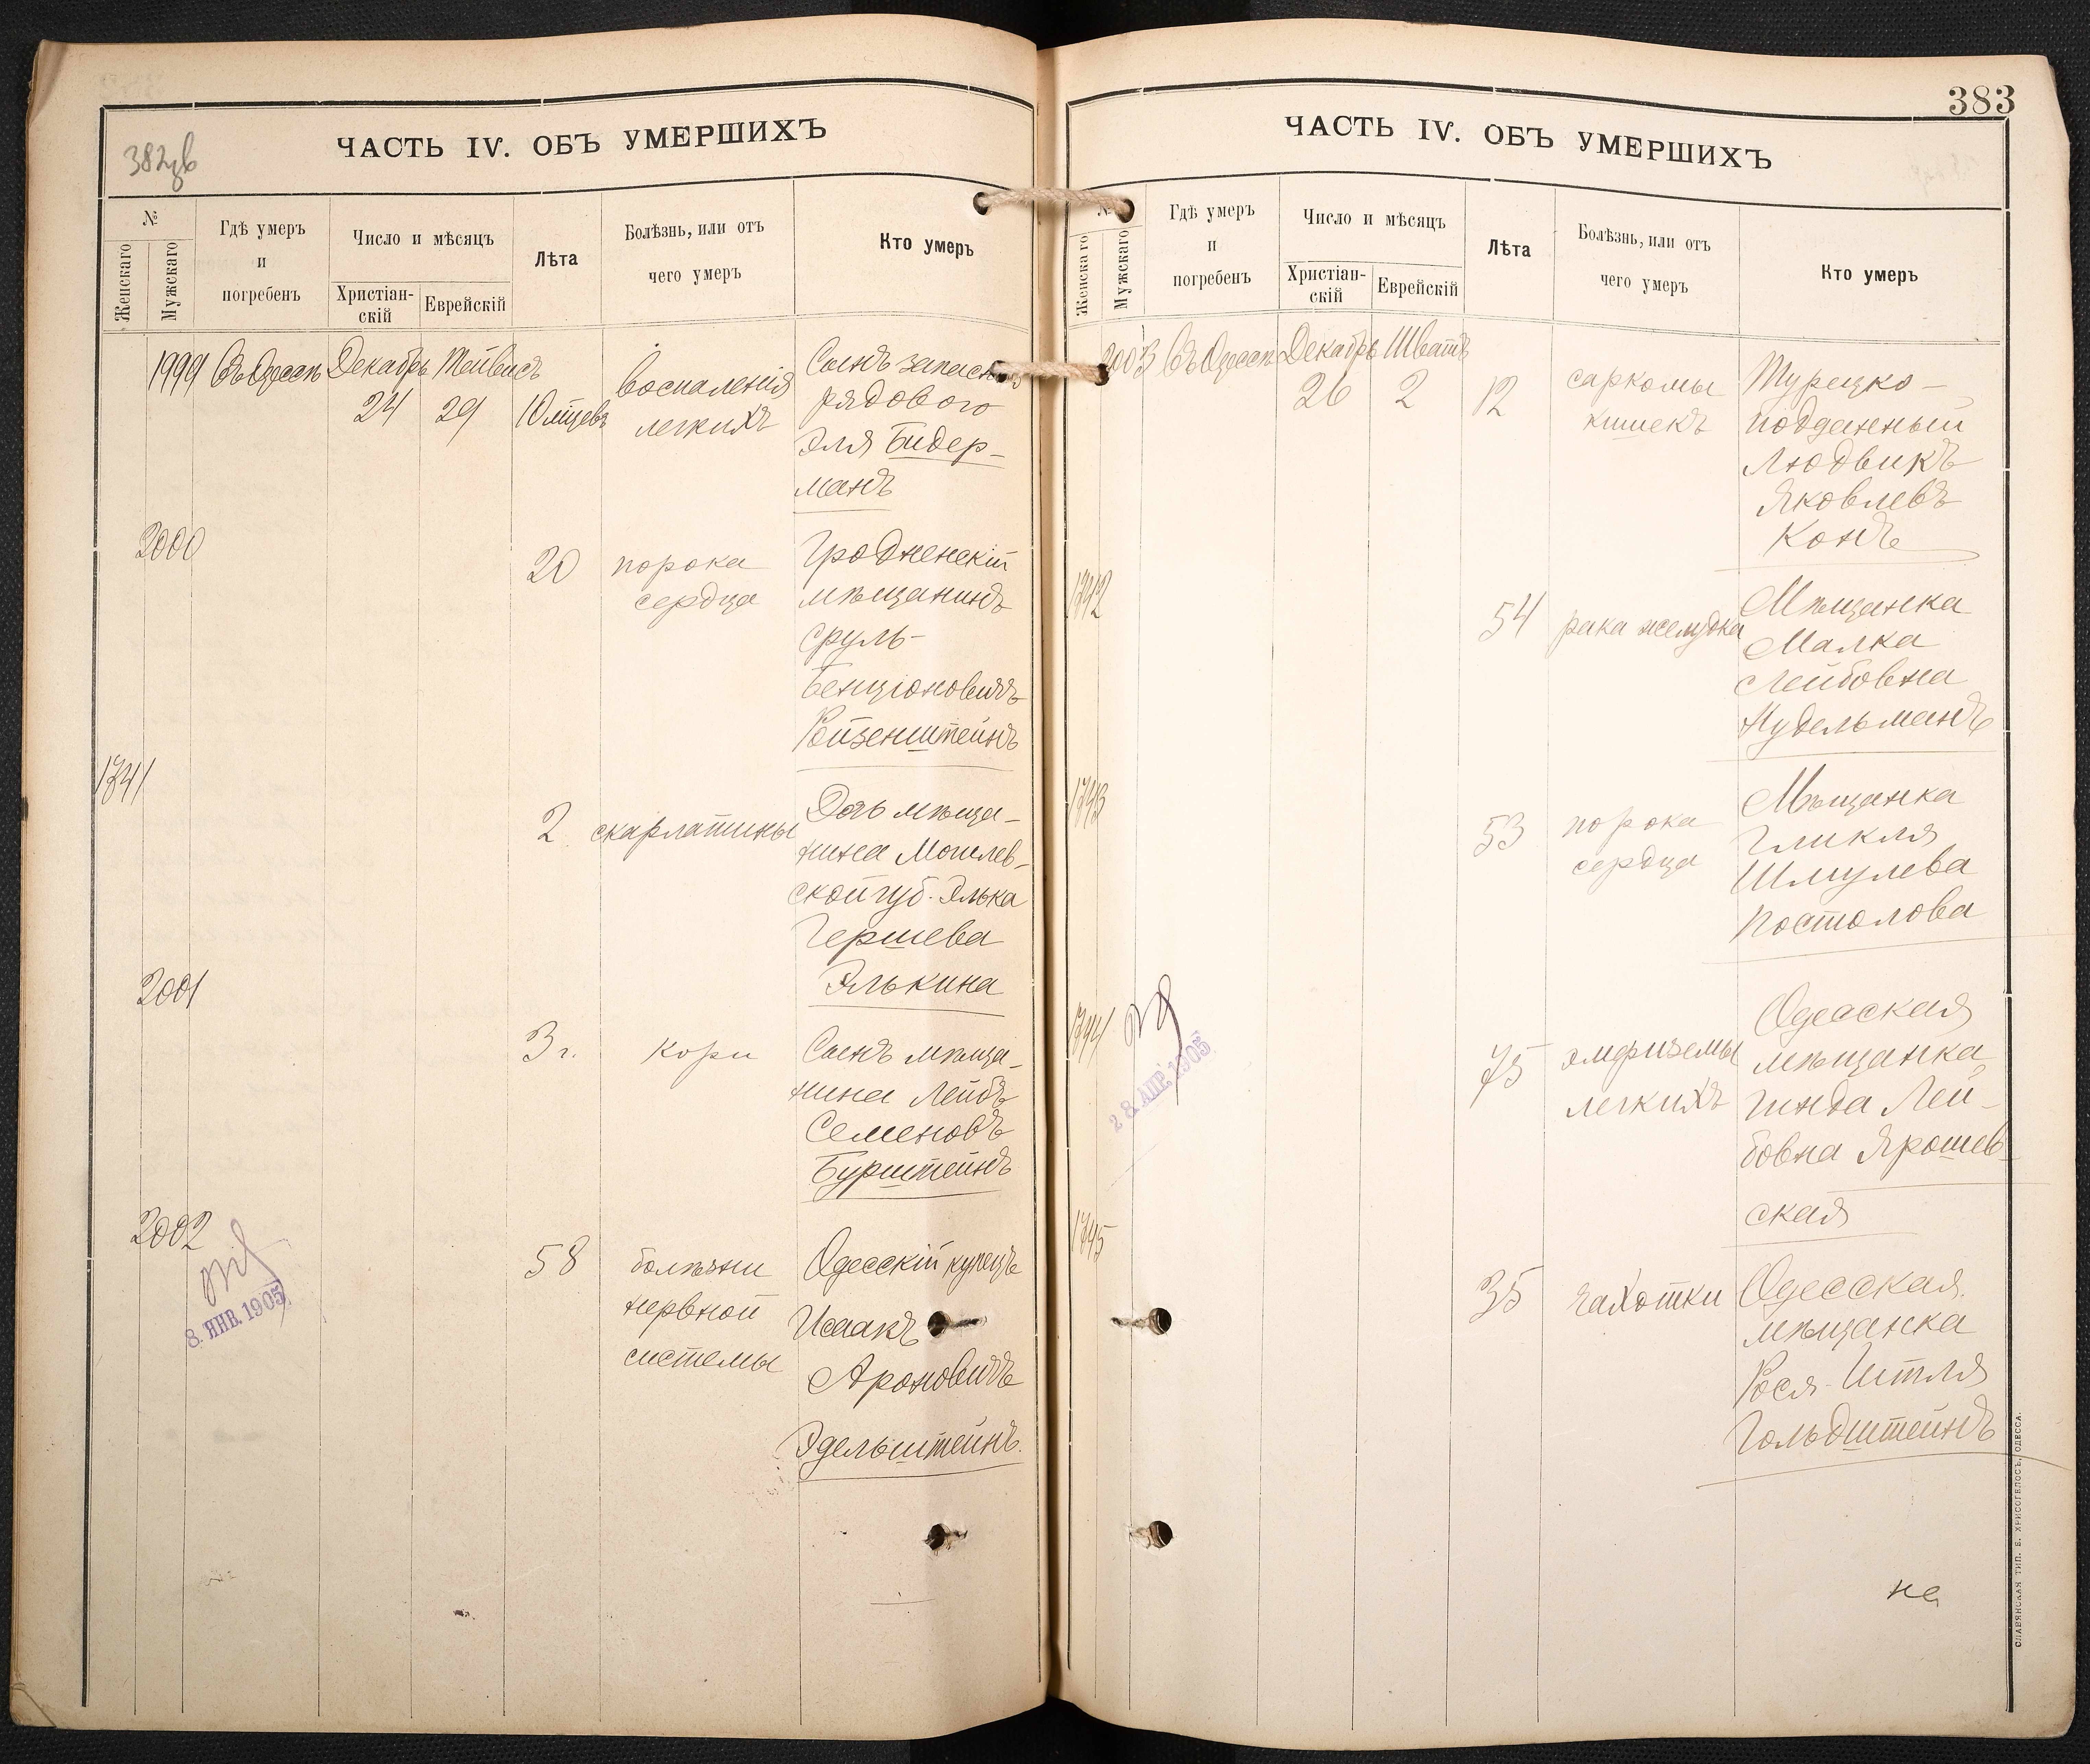 382 зв
ЧАСТЬ IV. ОБЪ УМЕРШИХЪ
№
Женскаго
Мужскаго
Гдѣ умеръ
и
погребенъ
Число и мѣсяцъ
Христіан-
скій
Еврейскій
Лѣта
Болѣзнь, или отъ
чего умеръ
Кто умеръ
1999 Въ Одессѣ Декабрь Тейвисъ
24 29 10 мѣсяцевъ
воспаленія
легкихъ
Сынъ запасн
рядового
Эля Бидер-
манъ
2000
20 порока
сердца
Гродненскій
мѣщанинъ
Сруль-
Бенціоновичъ
Ройзенштейнъ
1741
2 скарлатины
Дочь мѣща-
нина Могилев-
ской губ. Элька
Гершева
Элькина
2001
3 г. кори
Сынъ мѣща-
нина Лейбъ
Семеновъ
Бурштейнъ
2002
58 болѣзни
нервной
системы
Одесскій купецъ
Исаакъ
Ароновичъ
Эдельштейнъ.
8. ЯНВ. 1905
383
ЧАСТЬ IV. ОБЪ УМЕРШИХЪ
№
Женскаго
Мужскаго
Гдѣ умеръ
и
погребенъ
Число и мѣсяцъ
Христіан-
скій
Еврейскій
Лѣта
Болѣзнь, или отъ
чего умеръ
Кто умеръ
2003 Въ Одессѣ Декабрь Шватъ
26 2 12
саркомы
кишекъ
Турецко-
подданный
Людвикъ
Яковлевъ
Конъ
1742
54 рака желудка
Мѣщанка
Малка
Лейбовна
Нудельманъ
1743
53 порока
сердца
Мѣщанка
Гликля
Шмулева
Постолова
1744
75 эмфиземы
легкихъ
Одесская
мѣщанка
Гинда Лей-
бовна Ярошев-
ская
28. АПР. 1905
1745
35 чахотки
Одесская
мѣщанка
Рося-Итля
Гольдштейнъ
на
СЛАВЯНСКАЯ ТИП. Е. ХРИСОГЕЛОСЪ, ОДЕССА.